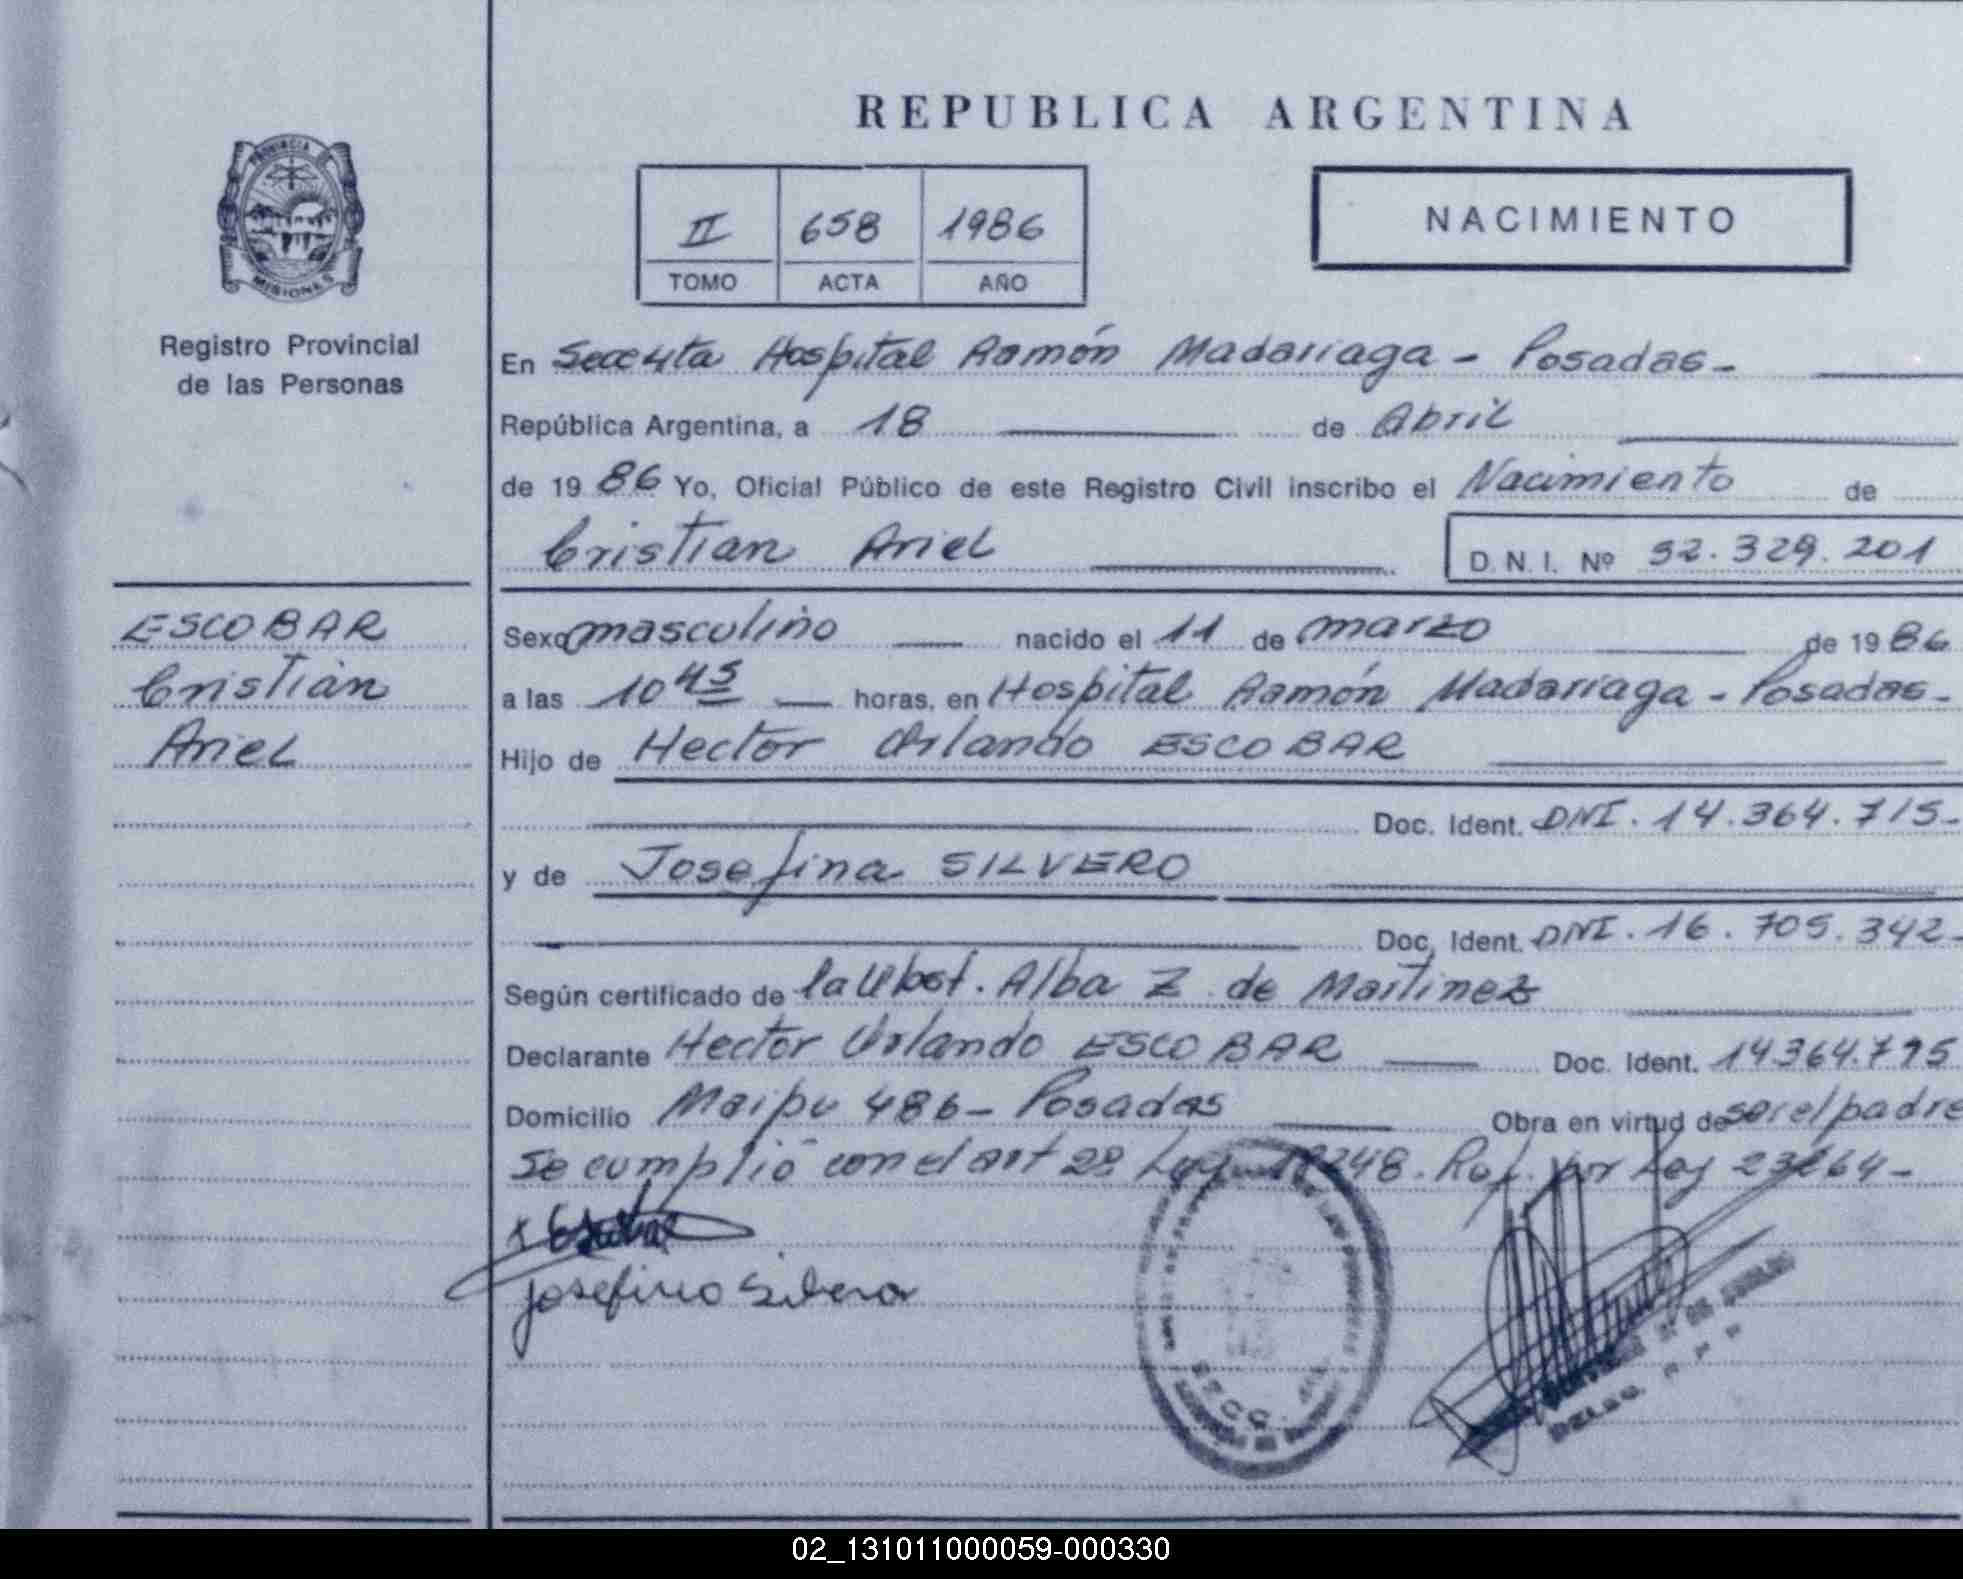 REPUBLICA ARGENTINA
PROVINCIA DE
MISIONES
Registro Provincial
de las Personas
II 658 1986
TOMO ACTA AÑO
NACIMIENTO
En Hospital Ramón Madariaga - Posadas -
República Argentina, a 18 de Abril
de 1986 Yo, Oficial Público de este Registro Civil inscribo el Nacimiento de
Cristian Ariel
D. N. I. Nº 32.329.201
ESCOBAR
Cristian
Ariel
Sexo masculino nacido el 11 de marzo de 1986
a las 10 45 horas, en Hospital Ramón Madariaga - Posadas -
Hijo de Hector Orlando ESCOBAR
Doc. Ident. DNI. 14.364.715 -
y de Josefina SILVERO
Doc. Ident. DNI. 16.705.342 -
Según certificado de la Obst. Alba Z de Martinez
Declarante Hector Orlando ESCOBAR Doc. Ident. 14364.795
Domicilio Maipu 486 - Posadas Obra en virtud de ser el padre
Se cumplió con el art 2º Ley 18248. Ref. por Ley 23264 -
Josefina Silvero
02_131011000059-000330